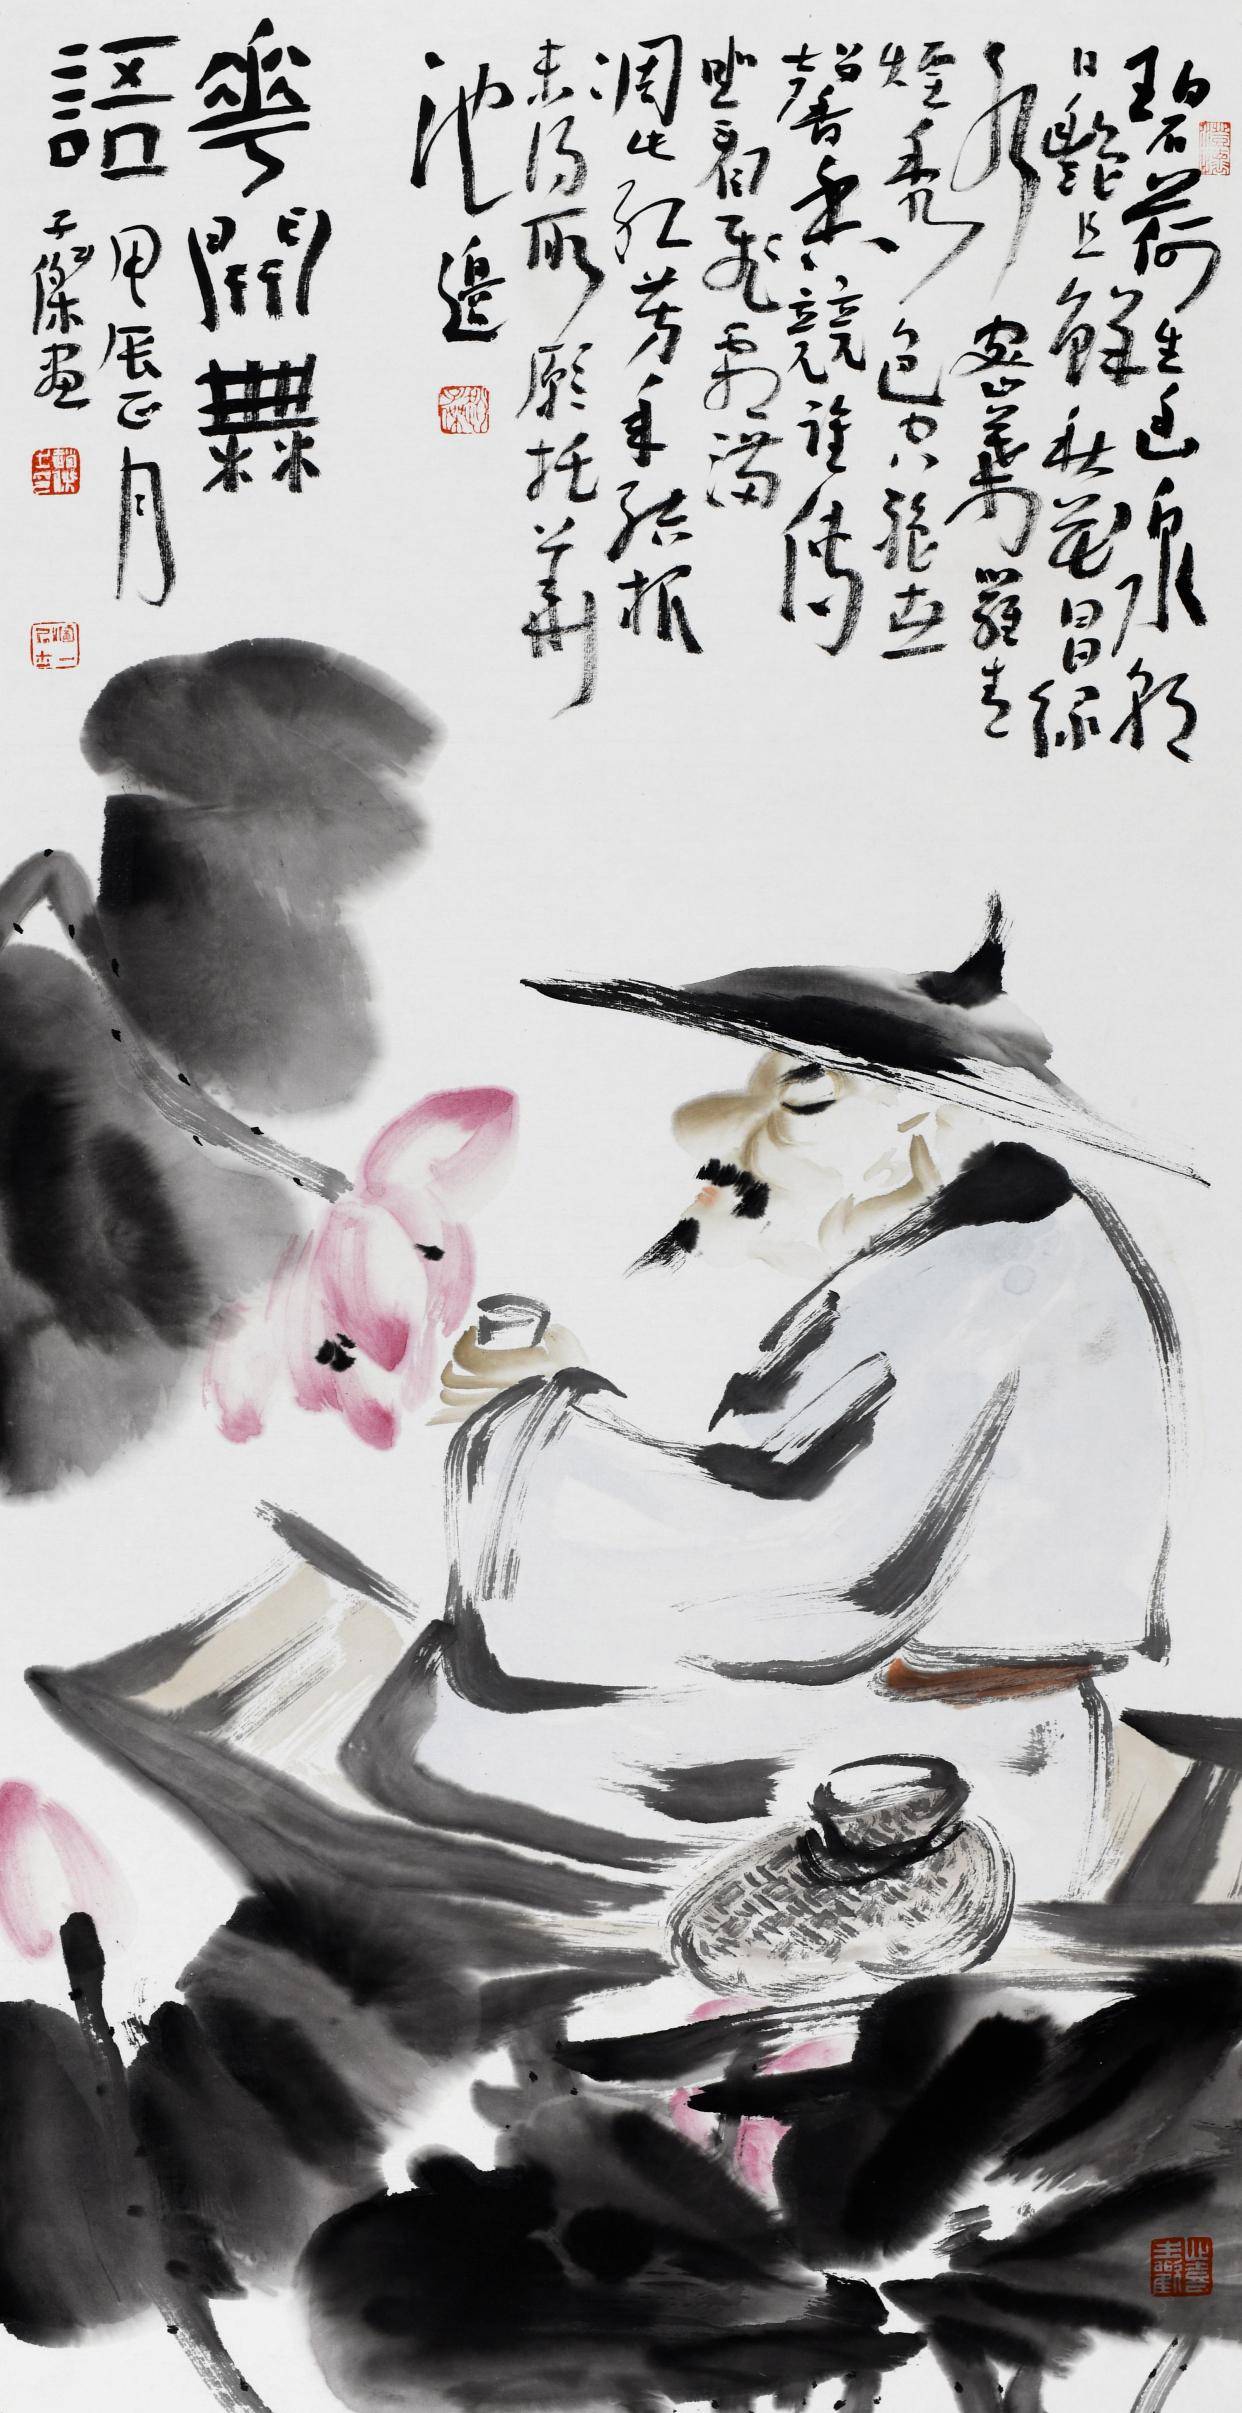 碧荷生幽泉朝
日豔且鮮秋花冒綠
水密葉羅青
煙秀色空絕世
馨香競誰傳
坐看飛霜滿
凋此紅芳年結根
未得所願托華
池邊
華開無
語
甲辰正月
子傑畫